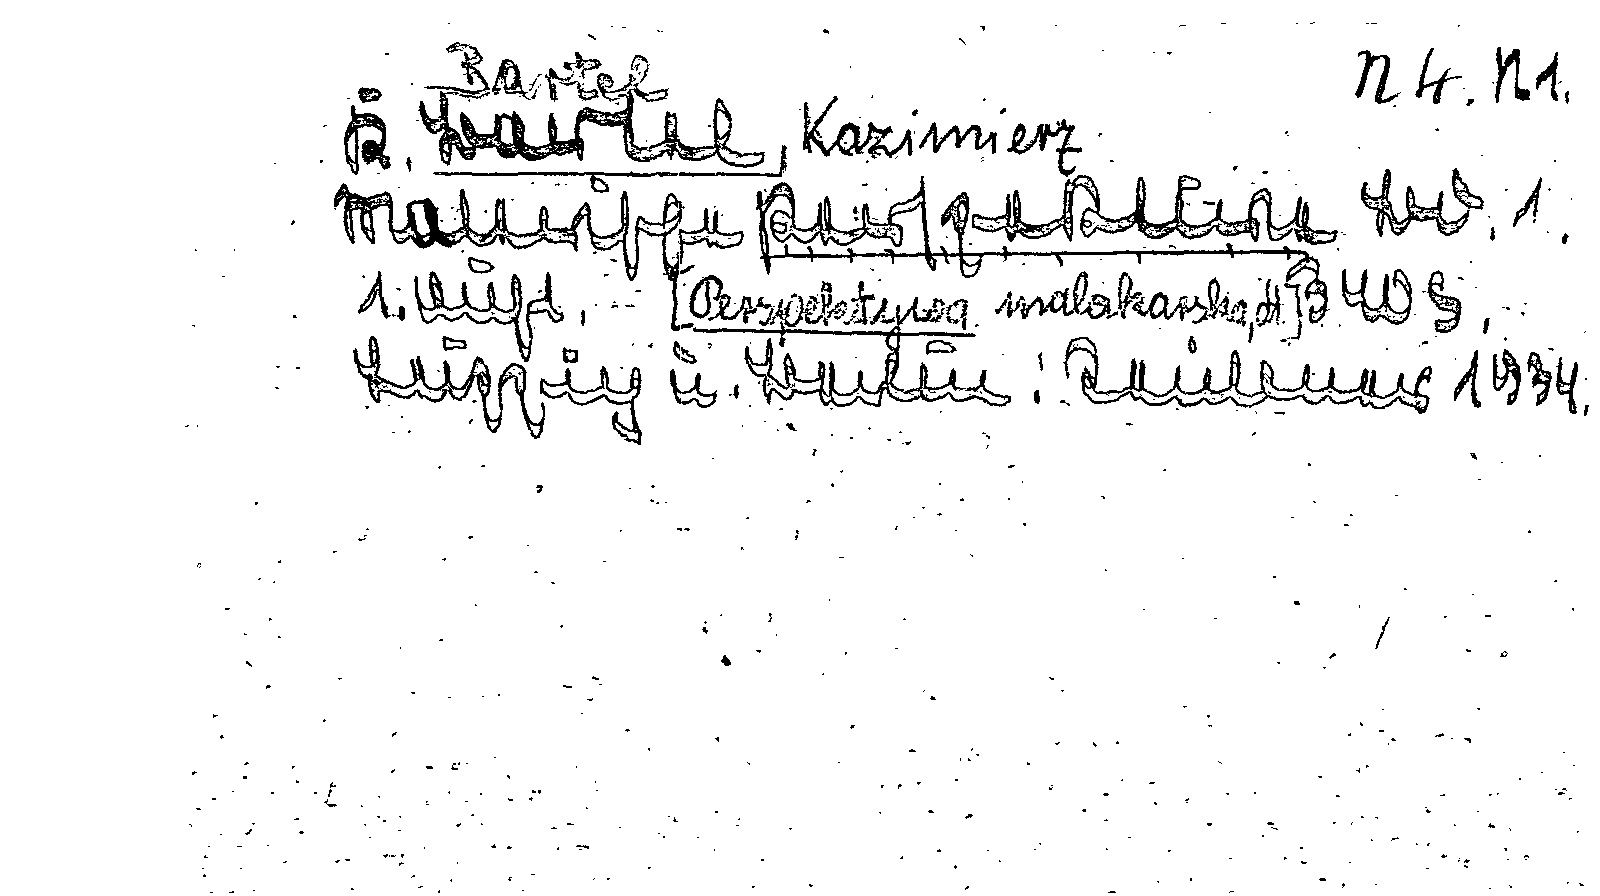 Bartel N 4. N 1.
R. Bartel, Kazimierz
Malerische Perspektive Bd. 1.
1. Aufl. [Perspektywa malarska, dt.] 340 S.
Leipzig u. Berlin: Teubner 1934.